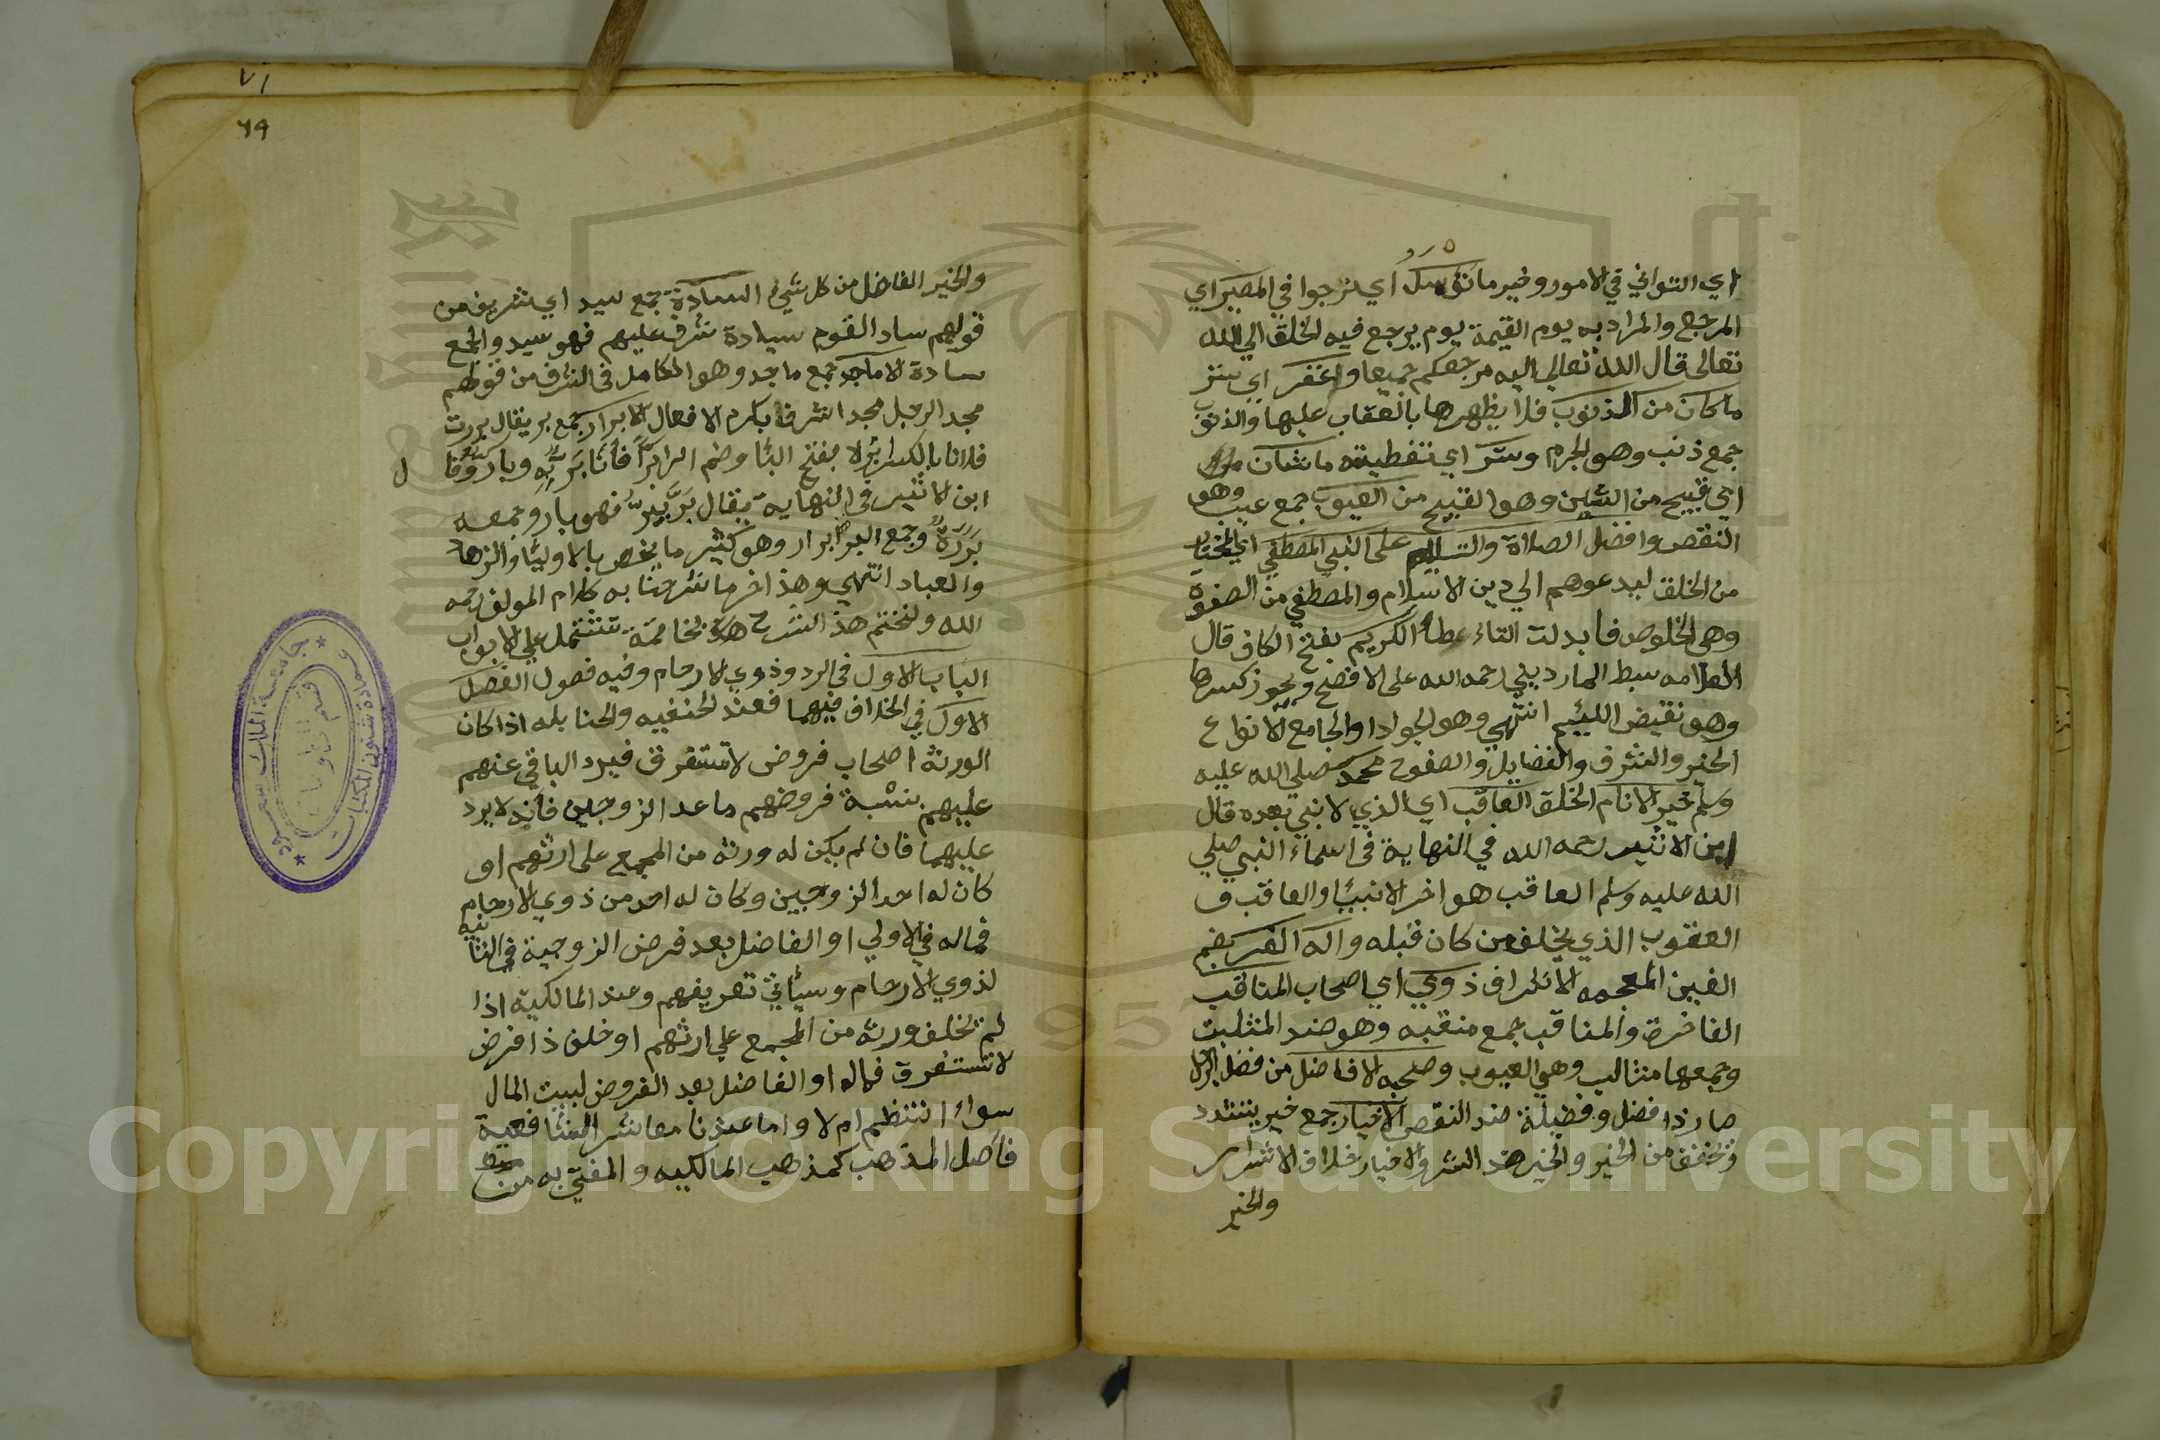 اي التواني في الامور وخير ما نؤمل اي نرجوا في المصير اي
المرجع والمراد به يوم القيمة يوم يرجع فيه الخلق الي الله
تعالى قال الله تعالي اليه مرجعكم جميعا واغفر اي ستر
ما كان من الذنوب فلا يظهرها بالعقاب عليها والذنوب
جمع ذنب وهو الجرم وستر اي تغطيته ما شان
اي قبيح من الشين وهو القبيح من العيوب جمع عيب وهو
النقص وافضل الصلاة والتسليم على النبي المصطفي اي المختار
من الخلق ليدعوهم الي دين الاسلام والمصطفي من الصفوة
وهي الخلوص فابدلت التاء طاء الكريم بفتح الكاف قال
العلامه سبط المارديني رحمه الله على الافصح ويجوز كسرها
وهو نقيض اللئيم انتهي وهو الجواد او الجامع لانواع
الخير والشرف والفضايل والصفوح محمد صلي الله عليه
وسلم خير الانام الخلق العاقب اي الذي لا نبي بعده قال
ابن الاثير رحمه الله في النهاية في اسماء النبي صلي
الله عليه وسلم العاقب هو اخر الانبيا والعاقب ف
العقوب الذي يخلف من كان قبله واله الغر بضم
الغين المعجمه الاشراف ذوي اي اصحاب المناقب
الفاخرة والمناقب جمع منقبه وهو ضد المثلبت
وجمعها مثالب وهي العيوب وصحبه الافاضل من فضل الرجل
صار ذا فضل وفضيلة ضد النقص الاخيار جمع خير بتشدد
وتخفف من الخير والخير ضد الشر والاخيار خلاف الاشرار
والخير
٧١
٦٩
والخير الفاضل من كل شيء السادة جمع سيد اي شريف من
قولهم ساد القوم سيادة شرف عليهم فهو سيد والجمع
سادة الاماجد جمع ماجد وهو الكامل في الشرف من قولهم
مجد الرجل مجد الشرف بكرم الافعال الابرار جمع بر يقال بررت
فلانا بالكسر ابره بفتح البا وضم الرا برا فأنا بر به وبار وفا ل
ابن الاثير في النهاية يقال بر يبر فهو بار وجمعه
بررة وجمع البر ابرار وهو كثير ما يخص بالاوليا والزهاد
والعباد انتهي وهذا اخر ما شرحنا به كلام المولف رحمه
الله ولنختم هذ الشرح بخاتمة تشتمل علي الابواب
الباب الاول في الرد وذوي الارحام وفيه فصول الفصل
الاول في الخلاف فيهما فعند الحنفيه والحنابله اذا كان
الورثة اصحاب فروض لا تستغرق فيرد الباقي عنهم
عليهم بنسبة فروضهم ما عدا الزوجين فانه لا يرد
عليهما فان لم يكن له ورثه من المجمع على ارثهم او
كان له احد الزوجين وكان له احد من ذوي الارحام
فماله في الاولي او الفاضل بعد فرض الزوجية في الثانيه
لذوي الارحام وسيأتي تعريفهم وعند المالكية اذا
لم تخلف ورثه من المجمع علي ارثهم او خلف ذا فرض
لا تستغرق فماله او الفاضل بعد الفروض لبيت المال
سواء انتظم ام لا واما عندنا معاشر الشافعية
فاصل المذهب كمذهب المالكيه والمفتي به من
جامعة الملك سعود
عمادة شئون المكتبات
قسم المخطوطات
Copyright © King Saud University